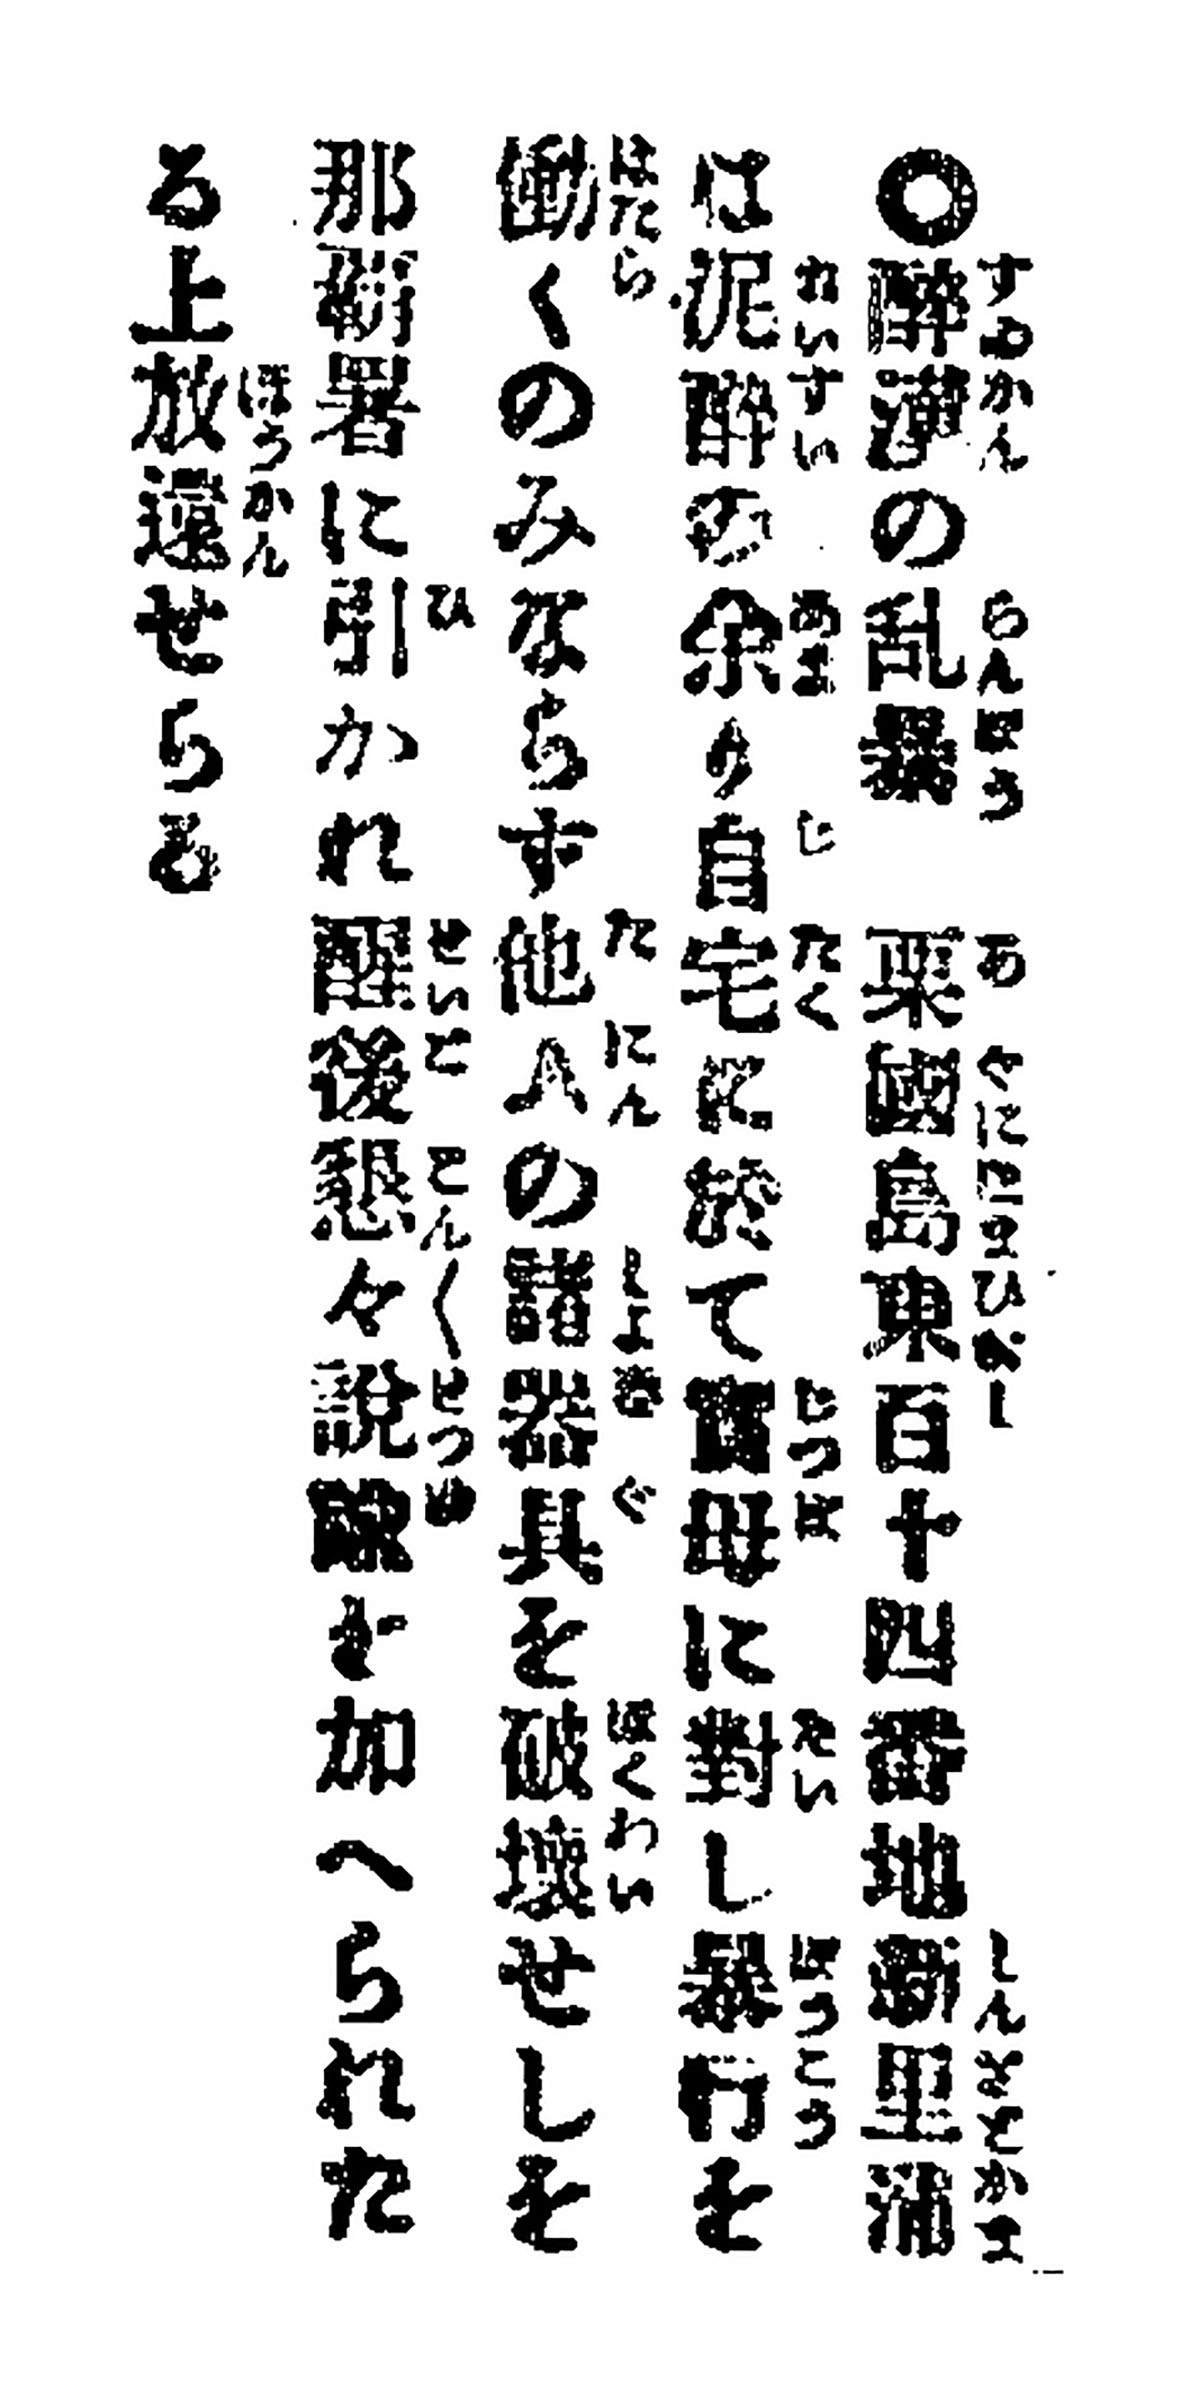 ○醉漢の乱暴　粟國島東百十四番地新里蒲
は泥酔の余り自宅に於て實母に對し暴行を
働くのみならす他人の諸器具を破壊せしを
那覇署に引かれ醒後懇々説諭を加へられた
る上放還せらる